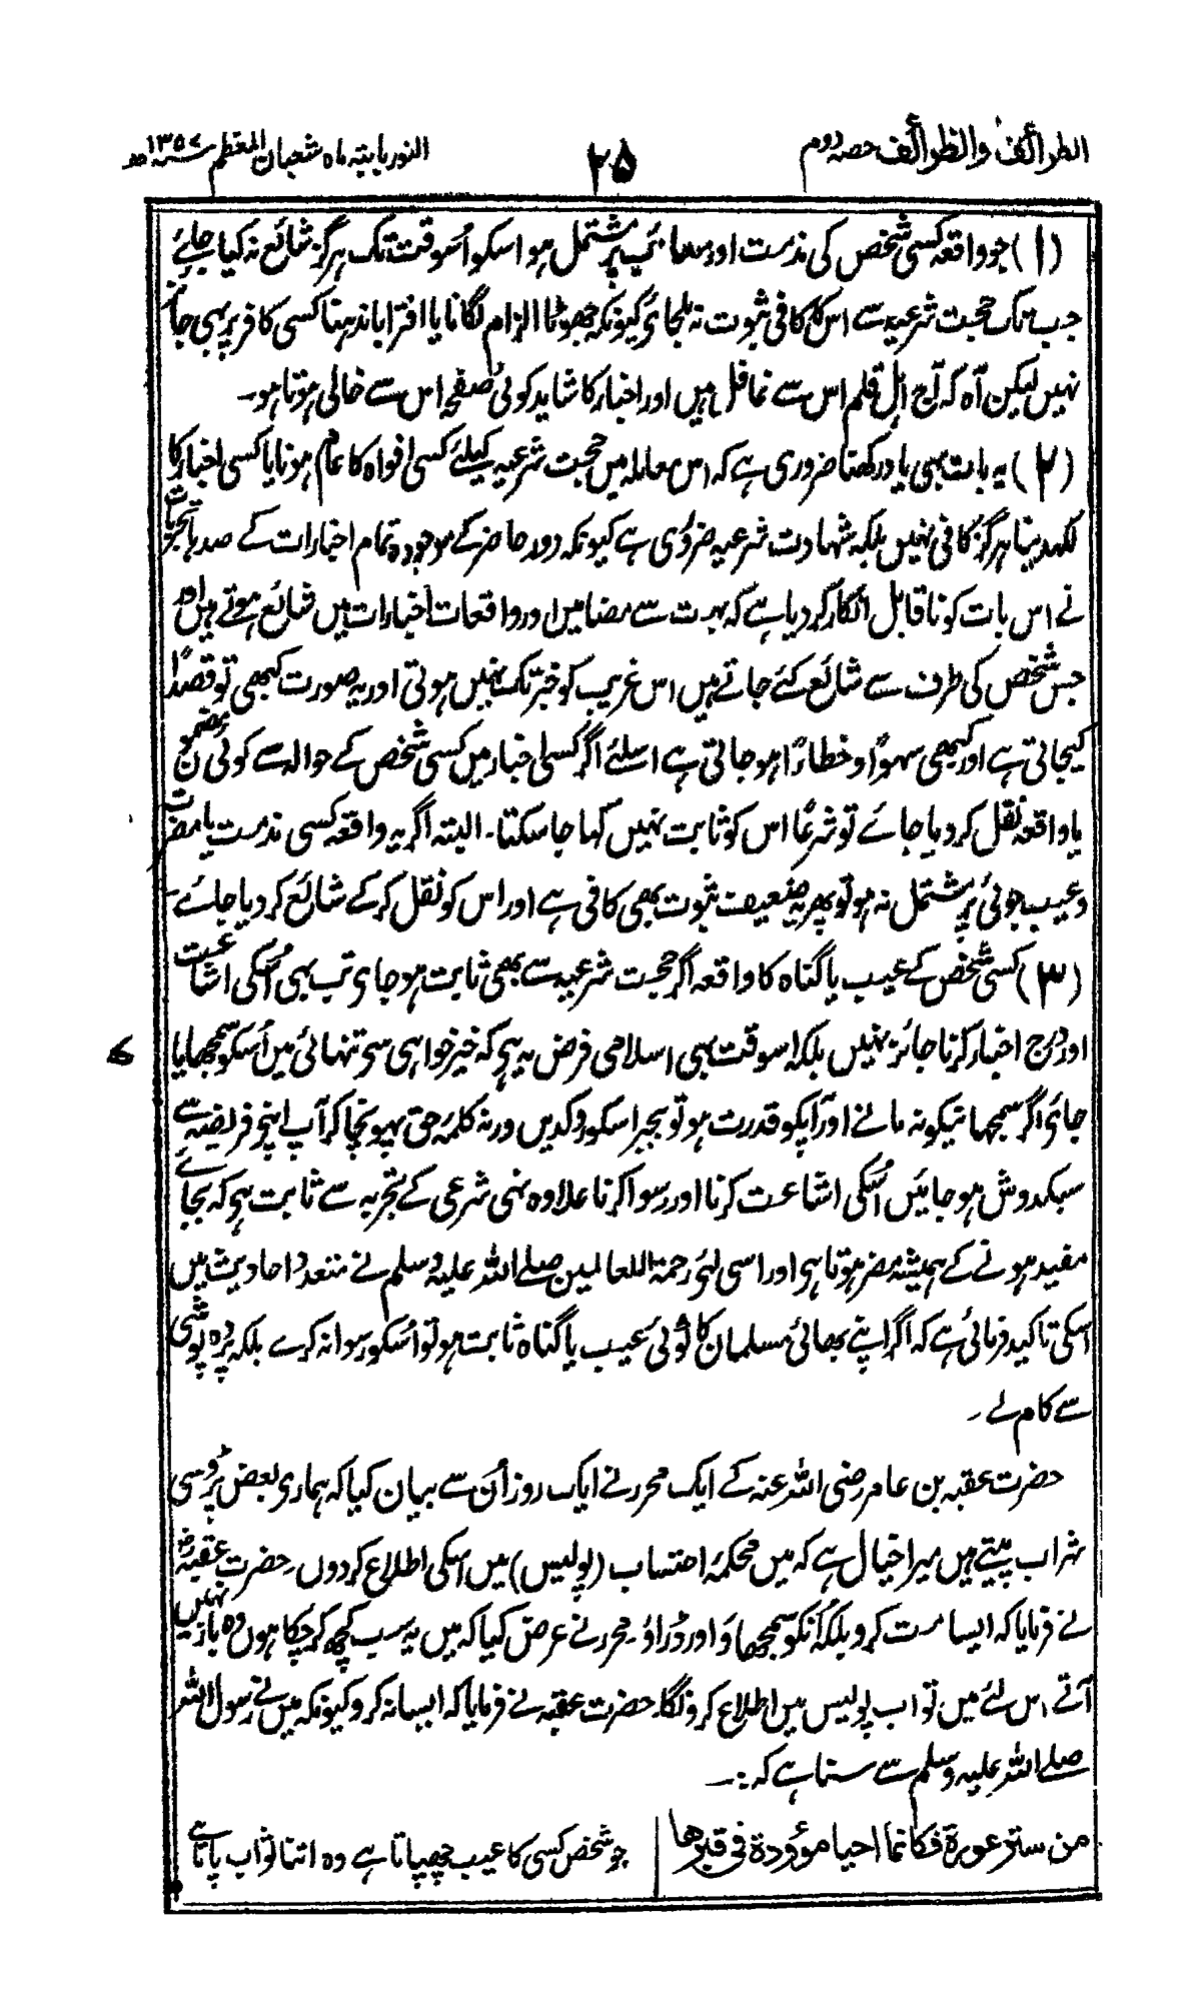 الطرائف والظرائف حصہ دوم
۲۵
النور بابتہ ماہ شعبان المعظم ۱۳۵۷ھ
(۱) جو واقعہ کسی شخص کی مذمت اور معائب پر مشتمل ہو اسکو اُسوقت تک ہرگز شائع نہ کیا جائے
جب تک حجت شرعیہ سے اس کا کافی ثبوت نہ ملجائے کیونکہ جھوٹا الزام لگانا یا افترا باندہنا کسی کافر پر بھی جائز
نہیں لیکن آہ کہ آج اہلِ قلم اس سے غافل ہیں اور اخبار کا شاید کوئی صفحہ اس سے خالی ہوتا ہو۔
(۲) یہ بات بھی یاد رکھنا ضروری ہے کہ اس معاملہ میں حجت شرعیہ کیلئے کسی افواہ کا عام ہونا یا کسی اخبار کا
لکھدینا ہرگز کافی نہیں بلکہ شہادت شرعیہ ضروری ہے کیونکہ دور حاضر کے موجودہ تمام اخبارات کے صدہا تجربات
نے اس بات کو ناقابل انکار کر دیا ہے کہ بہت سے مضامین اور واقعات اخبارات میں شائع ہوتے ہیں اور
جس شخص کی طرف سے شائع کئے جاتے ہیں اس غریب کو خبر تک نہیں ہوتی اور یہ صورت کبھی تو قصداً
کیجاتی ہے اور کبھی سہواً و خطاءً ہو جاتی ہے اسلئے اگر کسی اخبار میں کسی شخص کے حوالہ سے کوئی مضمون
یا واقعہ نقل کر دیا جائے تو شرعًا اس کو ثابت نہیں کہا جا سکتا۔ البتہ اگر یہ واقعہ کسی مذمت یا مضرت
و عیب جوئی پر مشتمل نہ ہو تو پھر یہ ضعیف ثبوت بھی کافی ہے اور اس کو نقل کر کے شائع کر دیا جائے۔
(۳) کسی شخص کے عیب یا گناہ کا واقعہ اگر حجت شرعیہ سے بھی ثابت ہو جاے تب بھی اُسکی اشاعت
اور درج اخبار کرنا جائز نہیں بلکہ اسوقت بھی اسلامی فرض یہ ہے کہ خیر خواہی سے تنہائی میں اُسکو سمجھایا
جائے اگر سمجھانیکو نہ مانے اور آپکو قدرت ہو تو بجبر اسکو روکدیں ورنہ کلمۂ حق پہونچا کر آپ اپنے فریضہ سے
سبکدوش ہو جائیں اُسکی اشاعت کرنا اور رسوا کرنا علاوہ نہی شرعی کے تجربہ سے ثابت ہے کہ بجائے
مفید ہونے کے ہمیشہ مضر ہوتا ہے اور اسی لئے رحمۃ اللعالمین صلے اللہ علیہ وسلم نے متعدد احادیث میں
اسکی تاکید فرمائی ہے کہ اگر اپنے بھائی مسلمان کا کوئی عیب یا گناہ ثابت ہو تو اُسکو رسوا نہ کرے بلکہ پردہ پوشی
سے کام لے۔
حضرت عقبہ بن عامر رضی اللہ عنہ کے ایک محرر نے ایک روز اُن سے بیان کیا کہ ہمارے بعض پڑوسی
شراب پیتے ہیں میرا خیال ہے کہ میں محکمۂ احتساب (پولیس) میں اسکی اطلاع کر دوں۔ حضرت عقبہؓ
نے فرمایا کہ ایسا مت کرو بلکہ اُنکو سمجھاؤ اور ڈراؤ۔ محرر نے عرض کیا کہ میں یہ سب کچھ کر چکا ہوں وہ باز نہیں
آتے اس لئے میں تو اب پولیس میں اطلاع کرونگا۔ حضرت عقبہ نے فرمایا کہ ایسا نہ کرو کیونکہ میں نے رسول اللہ
صلے اللہ علیہ وسلم سے سنا ہے کہ:۔
من ستر عورۃ فکانما احیا موؤدۃ فی قبرھا
جو شخص کسی کا عیب چھپاتا ہے وہ اتنا ثواب پاتا ہے